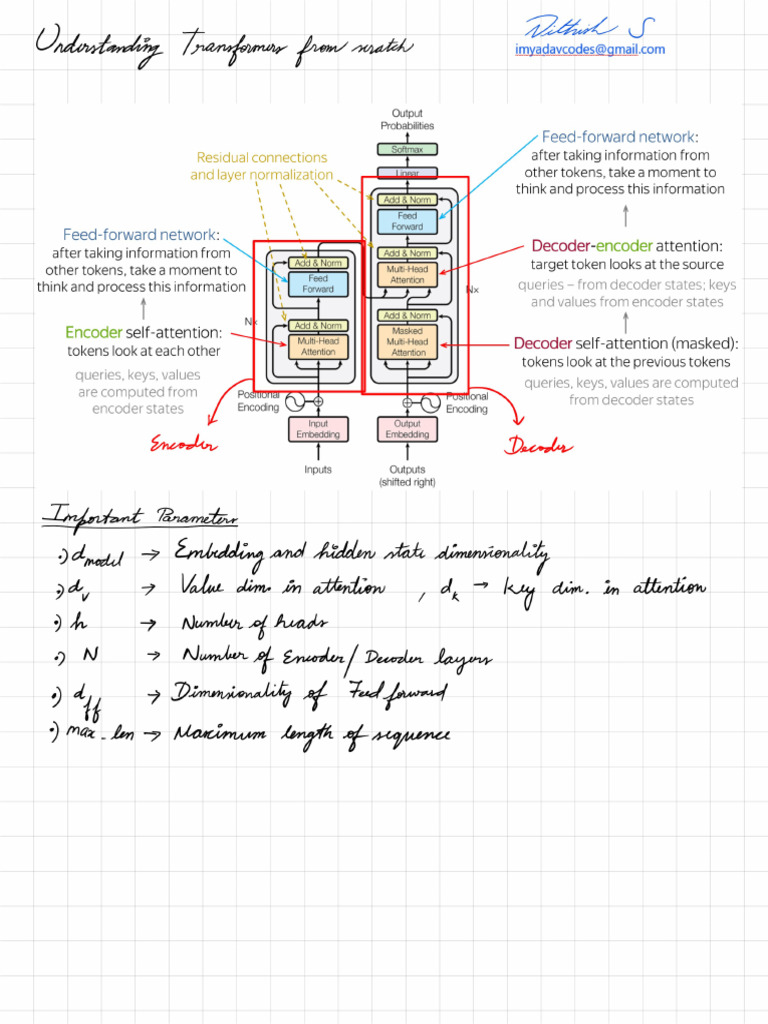 Understanding Transformers from scratch
Nithish S
imyadavcodes@gmail.com
Output
Probabilities
Softmax
Linear
Add & Norm
Feed
Forward
Add & Norm
Multi-Head
Attention
Add & Norm
Masked
Multi-Head
Attention
Nx
Positional
Encoding
Output
Embedding
Outputs
(shifted right)
Residual connections
and layer normalization
Feed-forward network:
after taking information from
other tokens, take a moment to
think and process this information
Encoder self-attention:
tokens look at each other
queries, keys, values
are computed from
encoder states
Add & Norm
Feed
Forward
Nx
Add & Norm
Multi-Head
Attention
Positional
Encoding
Input
Embedding
Inputs
Encoder
Feed-forward network:
after taking information from
other tokens, take a moment to
think and process this information
Decoder-encoder attention:
target token looks at the source
queries – from decoder states; keys
and values from encoder states
Decoder self-attention (masked):
tokens look at the previous tokens
queries, keys, values are computed
from decoder states
Decoder
Important Parameters
•) d_model → Embedding and hidden state dimensionality
•) d_v → Value dim. in attention , d_k → Key dim. in attention
•) h → Number of heads
•) N → Number of Encoder/ Decoder layers
•) d_ff → Dimensionality of Feed forward
•) max_len → Maximum length of sequence